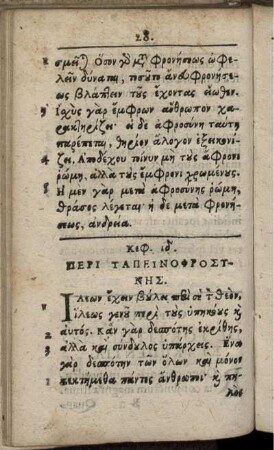 28.
σμεῖ) Ὅσον γὸ μτ φρονήσεως ὠφε
λεῖν δύναται, τοσοῦτο ἄνευ φρονήσε
ως βλάπτειν τοὺς ἔχοντας εἴωθεν.
Ἰσχὺς γὰρ ἔμφρων ἄνθρωπον χα
ρακτηρίζει· εἰ δὲ ἀφροσύνη ταύτῃ
παρέπεται, θηρίον ἄλογον ἐξεικονί
ζει. Ἀποδέχου τοίνυν μὴ τῆς ἄφρονι
ῥώμῃ, ἀλλὰ τῆς ἔμφρονι χρωμένους.
Ἡ μὲν γὰρ μετὰ ἀφροσύνης ῥώμη,
θράσος λέγεται· ἡ δὲ μετὰ φρονή
σεως, ἀνδρεία.
Κεφ. ιδ.
ΠΕΡΙ ΤΑΠΕΙΝΟΦΡΟΣΥ
ΝΗΣ.
Ἵλεων ἔχειν βουλε τὸν Θεὸν,
ἵλεως γενοῦ περὶ τοὺς ὑπηκόους κ
αὐτός. Κἂν γὰρ δεσπότης ἐκρίθης,
ἀλλὰ καὶ σύνδουλος ὑπάρχεις. Ἕνα
γὰρ δεσπότην τῶν ὅλων καὶ μόνον
κεκτήμεθα πάντες ἄνθρωποι· κ πη
λὸς